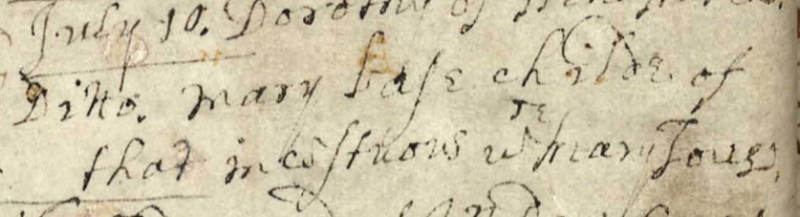 July 10. Dorothy of
Ditto. Mary base childe of
that incestuous wre Mary Jones,